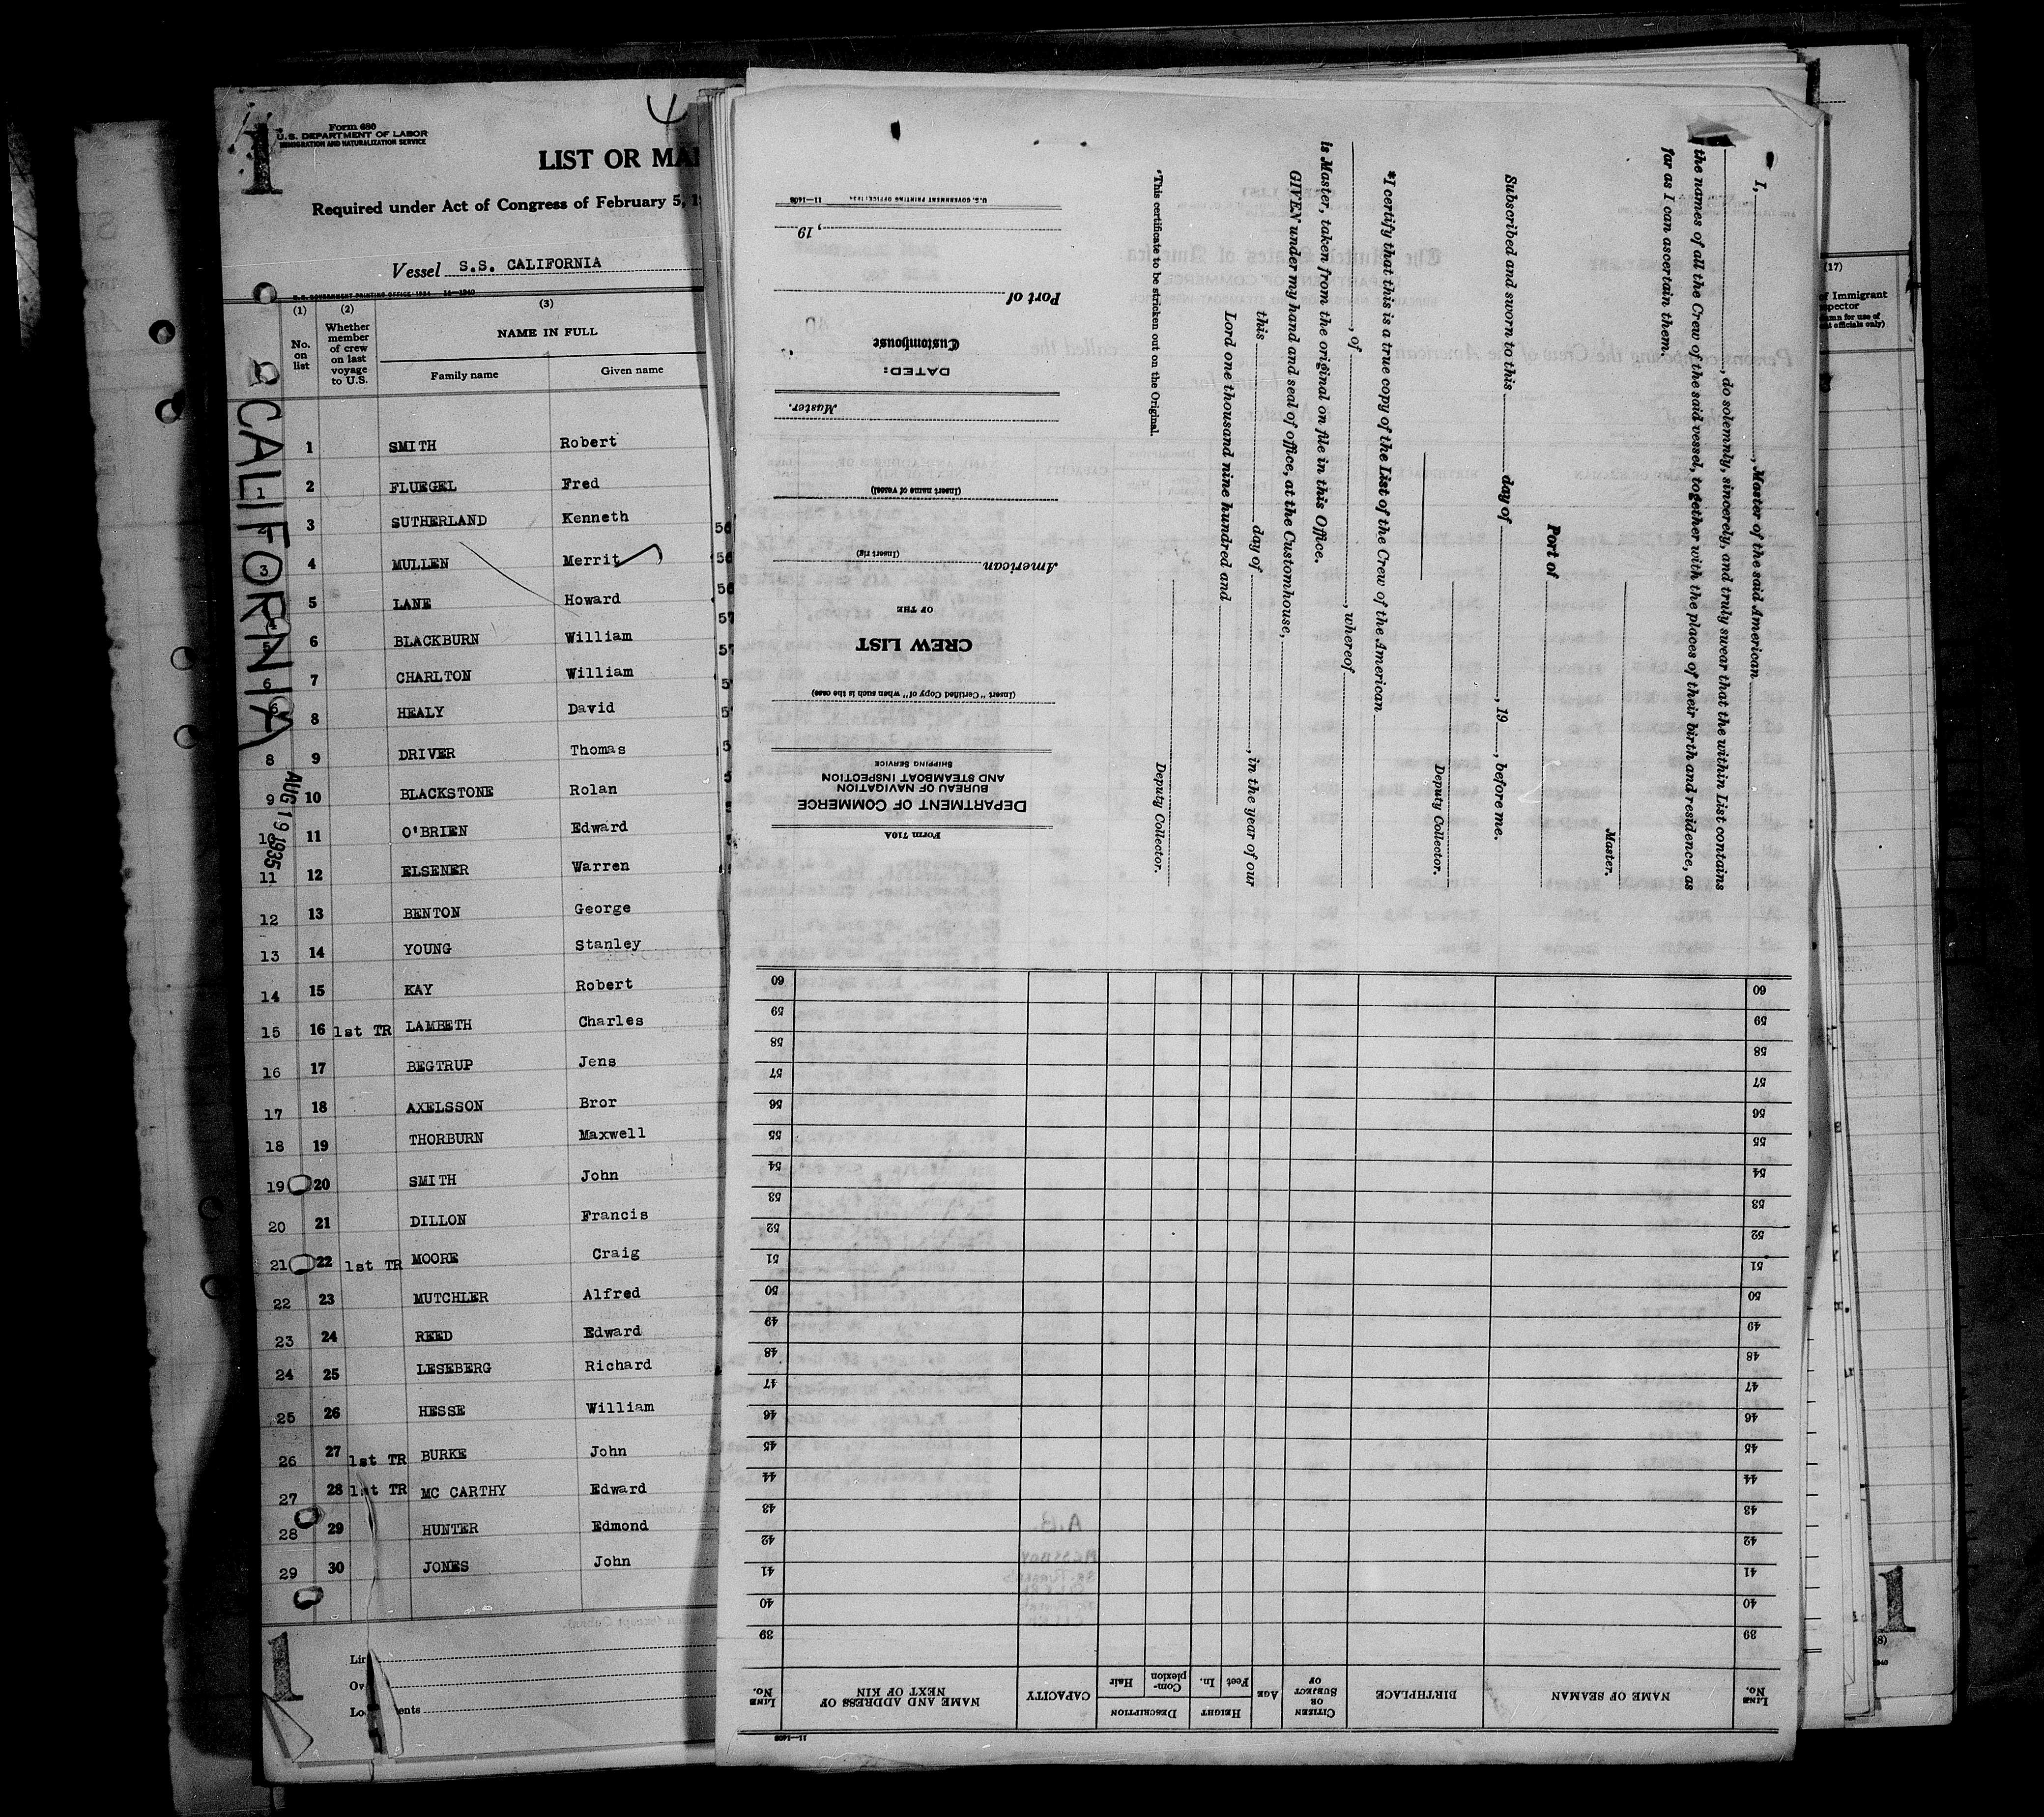 4
1
Form 680
U.S. DEPARTMENT OF LABOR
IMMIGRATION AND NATURALIZATION SERVICE
LIST OR MA
Required under Act of Congress of February 5, 1
Vessel S.S. CALIFORNIA
U.S. GOVERNMENT PRINTING OFFICE: 1934 14—1940
(1) (2) (3)
No. on list
Whether member of crew on last voyage to U.S.
NAME IN FULL
Family name Given name
CALIFORNIA
AUG 19 1935
1 SMITH Robert
1 2 FLUEGEL Fred
3 SUTHERLAND Kenneth
3 4 MULLEN Merrit
5 LANE Howard
5 6 BLACKBURN William
6 7 CHARLTON William
6 8 HEALY David
8 9 DRIVER Thomas
9 10 BLACKSTONE Rolan
10 11 O'BRIEN Edward
11 12 ELSENER Warren
12 13 BENTON George
13 14 YOUNG Stanley
14 15 KAY Robert
15 16 1st TR LAMBETH Charles
16 17 BEGTRUP Jens
17 18 AXELSSON Bror
18 19 THORBURN Maxwell
19 20 SMITH John
20 21 DILLON Francis
21 22 1st TR MOORE Craig
22 23 MUTCHLER Alfred
23 24 REED Edward
24 25 LESEBERG Richard
25 26 HESSE William
26 27 1st TR BURKE John
27 28 1st TR MC CARTHY Edward
28 29 HUNTER Edmond
29 30 JONES John
1
Form 710A
DEPARTMENT OF COMMERCE
BUREAU OF NAVIGATION
AND STEAMBOAT INSPECTION
SHIPPING SERVICE
(Insert "Certified Copy of" when such is the case)
CREW LIST
OF THE
American
(Insert rig)
(Insert name of vessel)
Master.
DATED:
Customhouse
Port of
, 19
U.S. GOVERNMENT PRINTING OFFICE: 1934 11—1408
I, , Master of the said American
, do solemnly, sincerely, and truly swear that the within List contains
the names of all the Crew of the said vessel, together with the places of their birth and residence, as
far as I can ascertain them.
Master.
Port of
Subscribed and sworn to this day of , 19 , before me.
Deputy Collector.
*I certify that this is a true copy of the List of the Crew of the American
, of , whereof
is Master, taken from the original on file in this Office.
GIVEN under my hand and seal of office, at the Customhouse,
this day of , in the year of our
Lord one thousand nine hundred and
Deputy Collector.
*This certificate to be stricken out on the Original.
LINE No.
NAME OF SEAMAN
BIRTHPLACE
CITIZEN OR SUBJECT OF
AGE
HEIGHT
Feet In.
DESCRIPTION
Complexion Hair
CAPACITY
NAME AND ADDRESS OF NEXT OF KIN
LINE No.
39 39
40 40
41 41
42 42
43 43
44 44
45 45
46 46
47 47
48 48
49 49
50 50
51 51
52 52
53 53
54 54
55 55
56 56
57 57
58 58
59 59
60 60
11—1408
(17)
of Immigrant
spector
umn for use of
officials only)
1